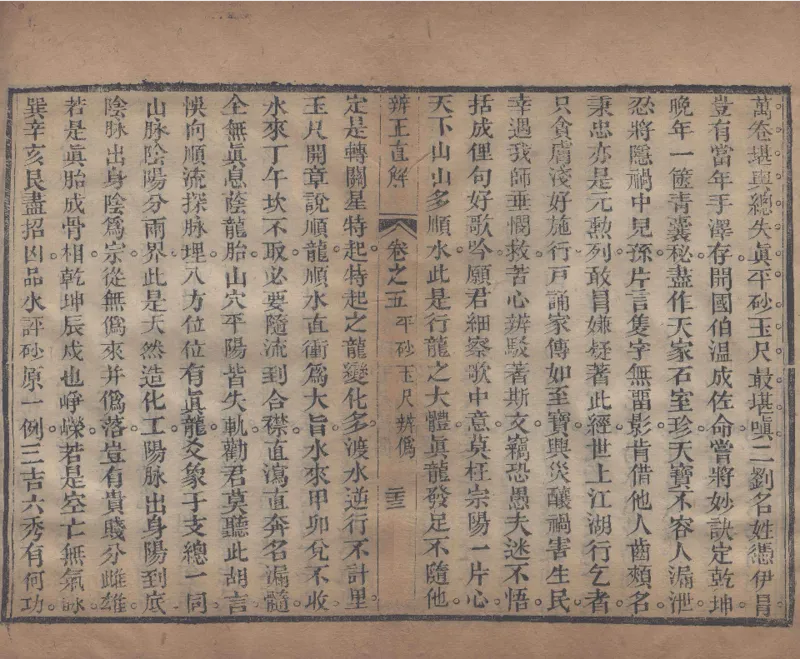 萬卷堪輿總失眞平砂玉尺最堪嗔二劉名姓憑伊冒
豈有當年手澤存開國伯溫成佐命嘗將妙訣定乾坤
晚年一篋青囊秘盡作天家石室珍天寶不容人漏泄
忍將隱禍中兒孫片言隻字無畱影肯借他人齒頰名
秉忠亦是元勲列敢冒嫌疑著此經世上江湖行乞者
只貪膚淺好施行戸誦家傳如至寶興災釀禍害生民
幸遇我師垂憫救苦心辨駁著斯文竊恐愚夫迷不悟
括成俚句好歌吟願君細察歌中意莫枉宗陽一片心
天下山山多順水此是行龍之大體眞龍發足不隨他
辨正直解 卷之五 平砂玉尺辨僞 二十三
定是轉關星特起特起之龍變化多渡水逆行不計里
玉尺開章說順龍順水直衝爲大旨水來甲卯兊不收
水來丁午坎不取必要隨流到合襟直瀉直奔名漏髓
全無眞息蔭龍胎山穴平陽皆失軌勸君莫聽此胡言
悞向順流探脉理八方位位有眞龍爻象干支總一同
山脉陰陽分兩界此是天然造化工陽脉出身陽到底
陰脉出身陰爲宗從無僞來并僞落豈有貴賤分雌雄
若是眞胎成骨相乾坤辰戌也崢嶸若是空亡無氣脉
巽辛亥艮盡招凶品水評砂原一例三吉六秀有何功